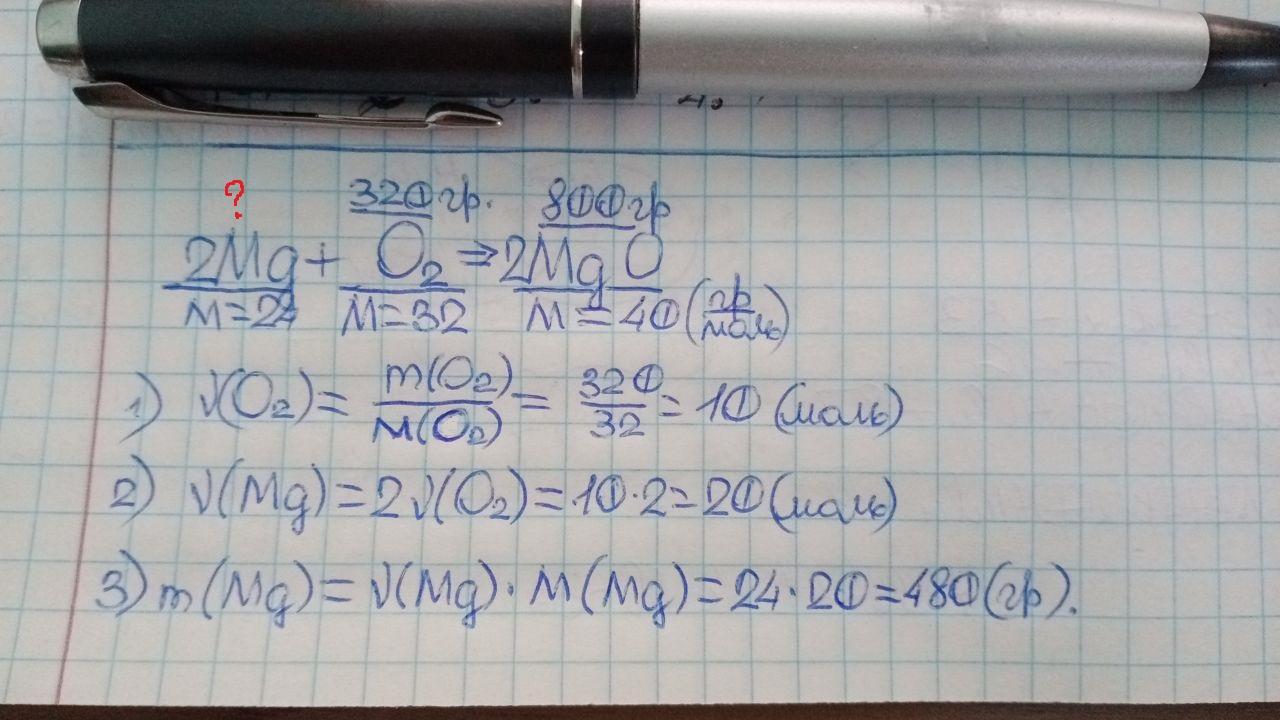 ?
320 гр. 800 гр
2Mg + O₂ ⇒ 2MgO
M=24 M=32 M=40 (гр/моль)
1) ν(O₂) = m(O₂)/M(O₂) = 320/32 = 10 (моль)
2) ν(Mg) = 2ν(O₂) = 10·2 = 20 (моль)
3) m(Mg) = ν(Mg)·M(Mg) = 24·20 = 480 (гр).